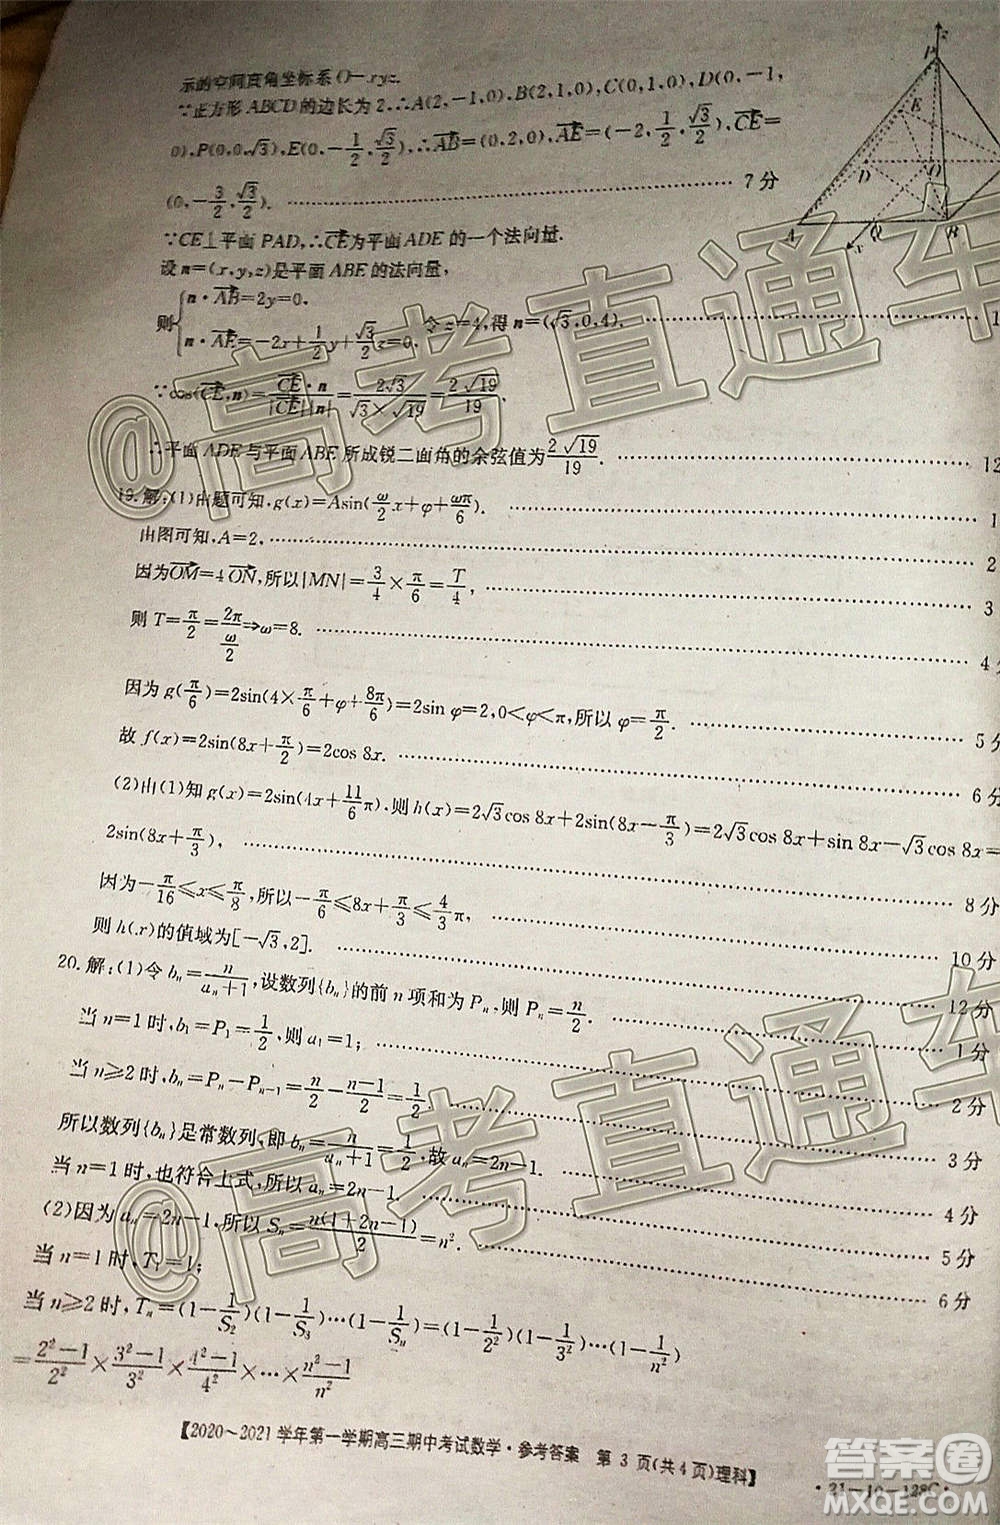 示的空间直角坐标系O-xyz.
∵正方形ABCD的边长为2,∴A(2,-1,0),B(2,1,0),C(0,1,0),D(0,-1,
0),P(0,0,√3),E(0,-1/2,√3/2),∴AB=(0,2,0),AE=(-2,1/2,√3/2),CE=
(0,-3/2,√3/2). …… 7分
∵CE⊥平面PAD,∴CE为平面ADE的一个法向量.
设n=(x,y,z)是平面ABE的法向量,
则{n·AB=2y=0,
n·AE=-2x+1/2y+√3/2z=0, 令z=4,得n=(√3,0,4). …… 1
∵cos⟨CE,n⟩=CE·n/|CE||n|=2√3/(√3×√19)=2√19/19,
∴平面ADE与平面ABE所成锐二面角的余弦值为2√19/19. …… 12
19.解:(1)由题可知,g(x)=Asin(ω/2x+φ+ωπ/6). …… 1
由图可知,A=2, …… 2
因为OM=4ON,所以|MN|=3/4×π/6=T/4, …… 3
则T=π/2=2π/(ω/2)⇒ω=8. …… 4分
因为g(π/6)=2sin(4×π/6+φ+8π/6)=2sin φ=2,0<φ<π,所以φ=π/2. …… 5分
故f(x)=2sin(8x+π/2)=2cos 8x. …… 6分
(2)由(1)知g(x)=2sin(4x+11/6π),则h(x)=2√3cos 8x+2sin(8x-π/3)=2√3cos 8x+sin 8x-√3cos 8x=
2sin(8x+π/3), …… 8分
因为-π/16≤x≤π/8,所以-π/6≤8x+π/3≤4/3π, …… 10分
则h(x)的值域为[-√3,2]. …… 12分
20.解:(1)令bₙ=n/(aₙ+1),设数列{bₙ}的前n项和为Pₙ,则Pₙ=n/2. …… 1分
当n=1时,b₁=P₁=1/2,则a₁=1; …… 2分
当n≥2时,bₙ=Pₙ-Pₙ₋₁=n/2-(n-1)/2=1/2. …… 3分
所以数列{bₙ}是常数列,即bₙ=n/(aₙ+1)=1/2,故aₙ=2n-1. …… 4分
当n=1时,也符合上式,所以aₙ=2n-1. …… 5分
(2)因为aₙ=2n-1,所以Sₙ=n(1+2n-1)/2=n². …… 6分
当n=1时,T₁=1;
当n≥2时,Tₙ=(1-1/S₂)(1-1/S₃)…(1-1/Sₙ)=(1-1/2²)(1-1/3²)…(1-1/n²)
=(2²-1)/2²×(3²-1)/3²×(4²-1)/4²×…×(n²-1)/n²
【2020~2021学年第一学期高三期中考试数学·参考答案 第3页(共4页)理科】
·21-10-128C·
z
P
E
D
O
A
Q
B
x
@高考直通车
@高考直通车
答案圈
MXQE.COM